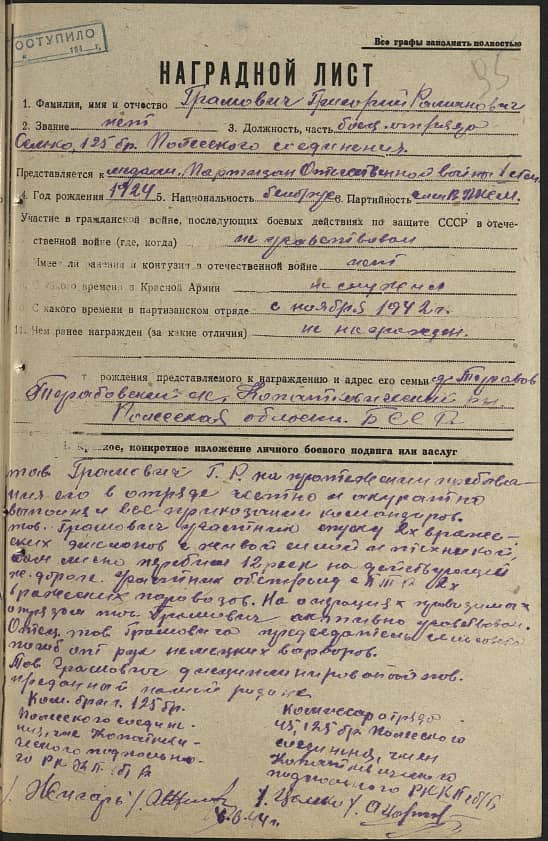 ПОСТУПИЛО
194 г.
Все графы заполнять полностью
95
НАГРАДНОЙ ЛИСТ
1. Фамилия, имя и отчество Грамович Григорий Романович
2. Звание нет 3. Должность, часть боец отряда
125 бр. Полесского соединения.
Представляется к медали "Партизан Отечественной войны" I степ.
4. Год рождения 1924 5. Национальность белорус 6. Партийность член ВЛКСМ.
Участие в гражданской войне, последующих боевых действиях по защите СССР в отече-
ственной войне (где, когда) не участвовал
Имеет ли ранения и контузии в отечественной войне нет
С какого времени в Красной Армии не служил
С какого времени в партизанском отряде с ноября 1942 г.
11. Чем ранее награжден (за какие отличия) не награжден.
рождения представляемого к награждению и адрес его семьи
с/с, Копаткевический р-н
Полесская область БССР
конкретное изложение личного боевого подвига или заслуг
тов Грамович Г. Р. на протяжении пребыва-
ния его в отряде честно и аккуратно
выполнял все приказания командиров.
тов. Грамович участник спуску 2х враже-
ских эшелонов с живой силой и техникой,
сам лично перебил 12 рельс на действующей
ж. дороге. Участник обстрела с ПТР 2х
вражеских паровозов. На операциях проводимых
отрядом тов Грамович активно участвовал.
Отец тов Грамовича председатель сельсовета
погиб от рук немецких варваров.
Тов Грамович дисциплинированный тов.
преданный нашей родине
Ком. бриг. 125 бр.
Полесского соедине-
ния, член Копаткеви-
ческого подпольно-
го РК КП(б)Б
Комиссар отряда
125 бр. Полесского
соединения, член
Копаткевического
подпольного РК КП(б)Б
6.44 г.